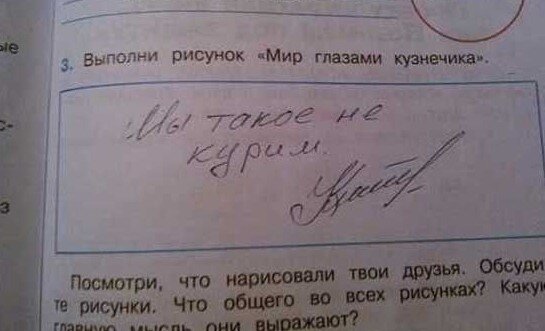 ые
с-
з
3. Выполни рисунок «Мир глазами кузнечика».
Мы такое не
курим.
Посмотри, что нарисовали твои друзья. Обсуди
те рисунки. Что общего во всех рисунках? Какую
главную мысль они выражают?